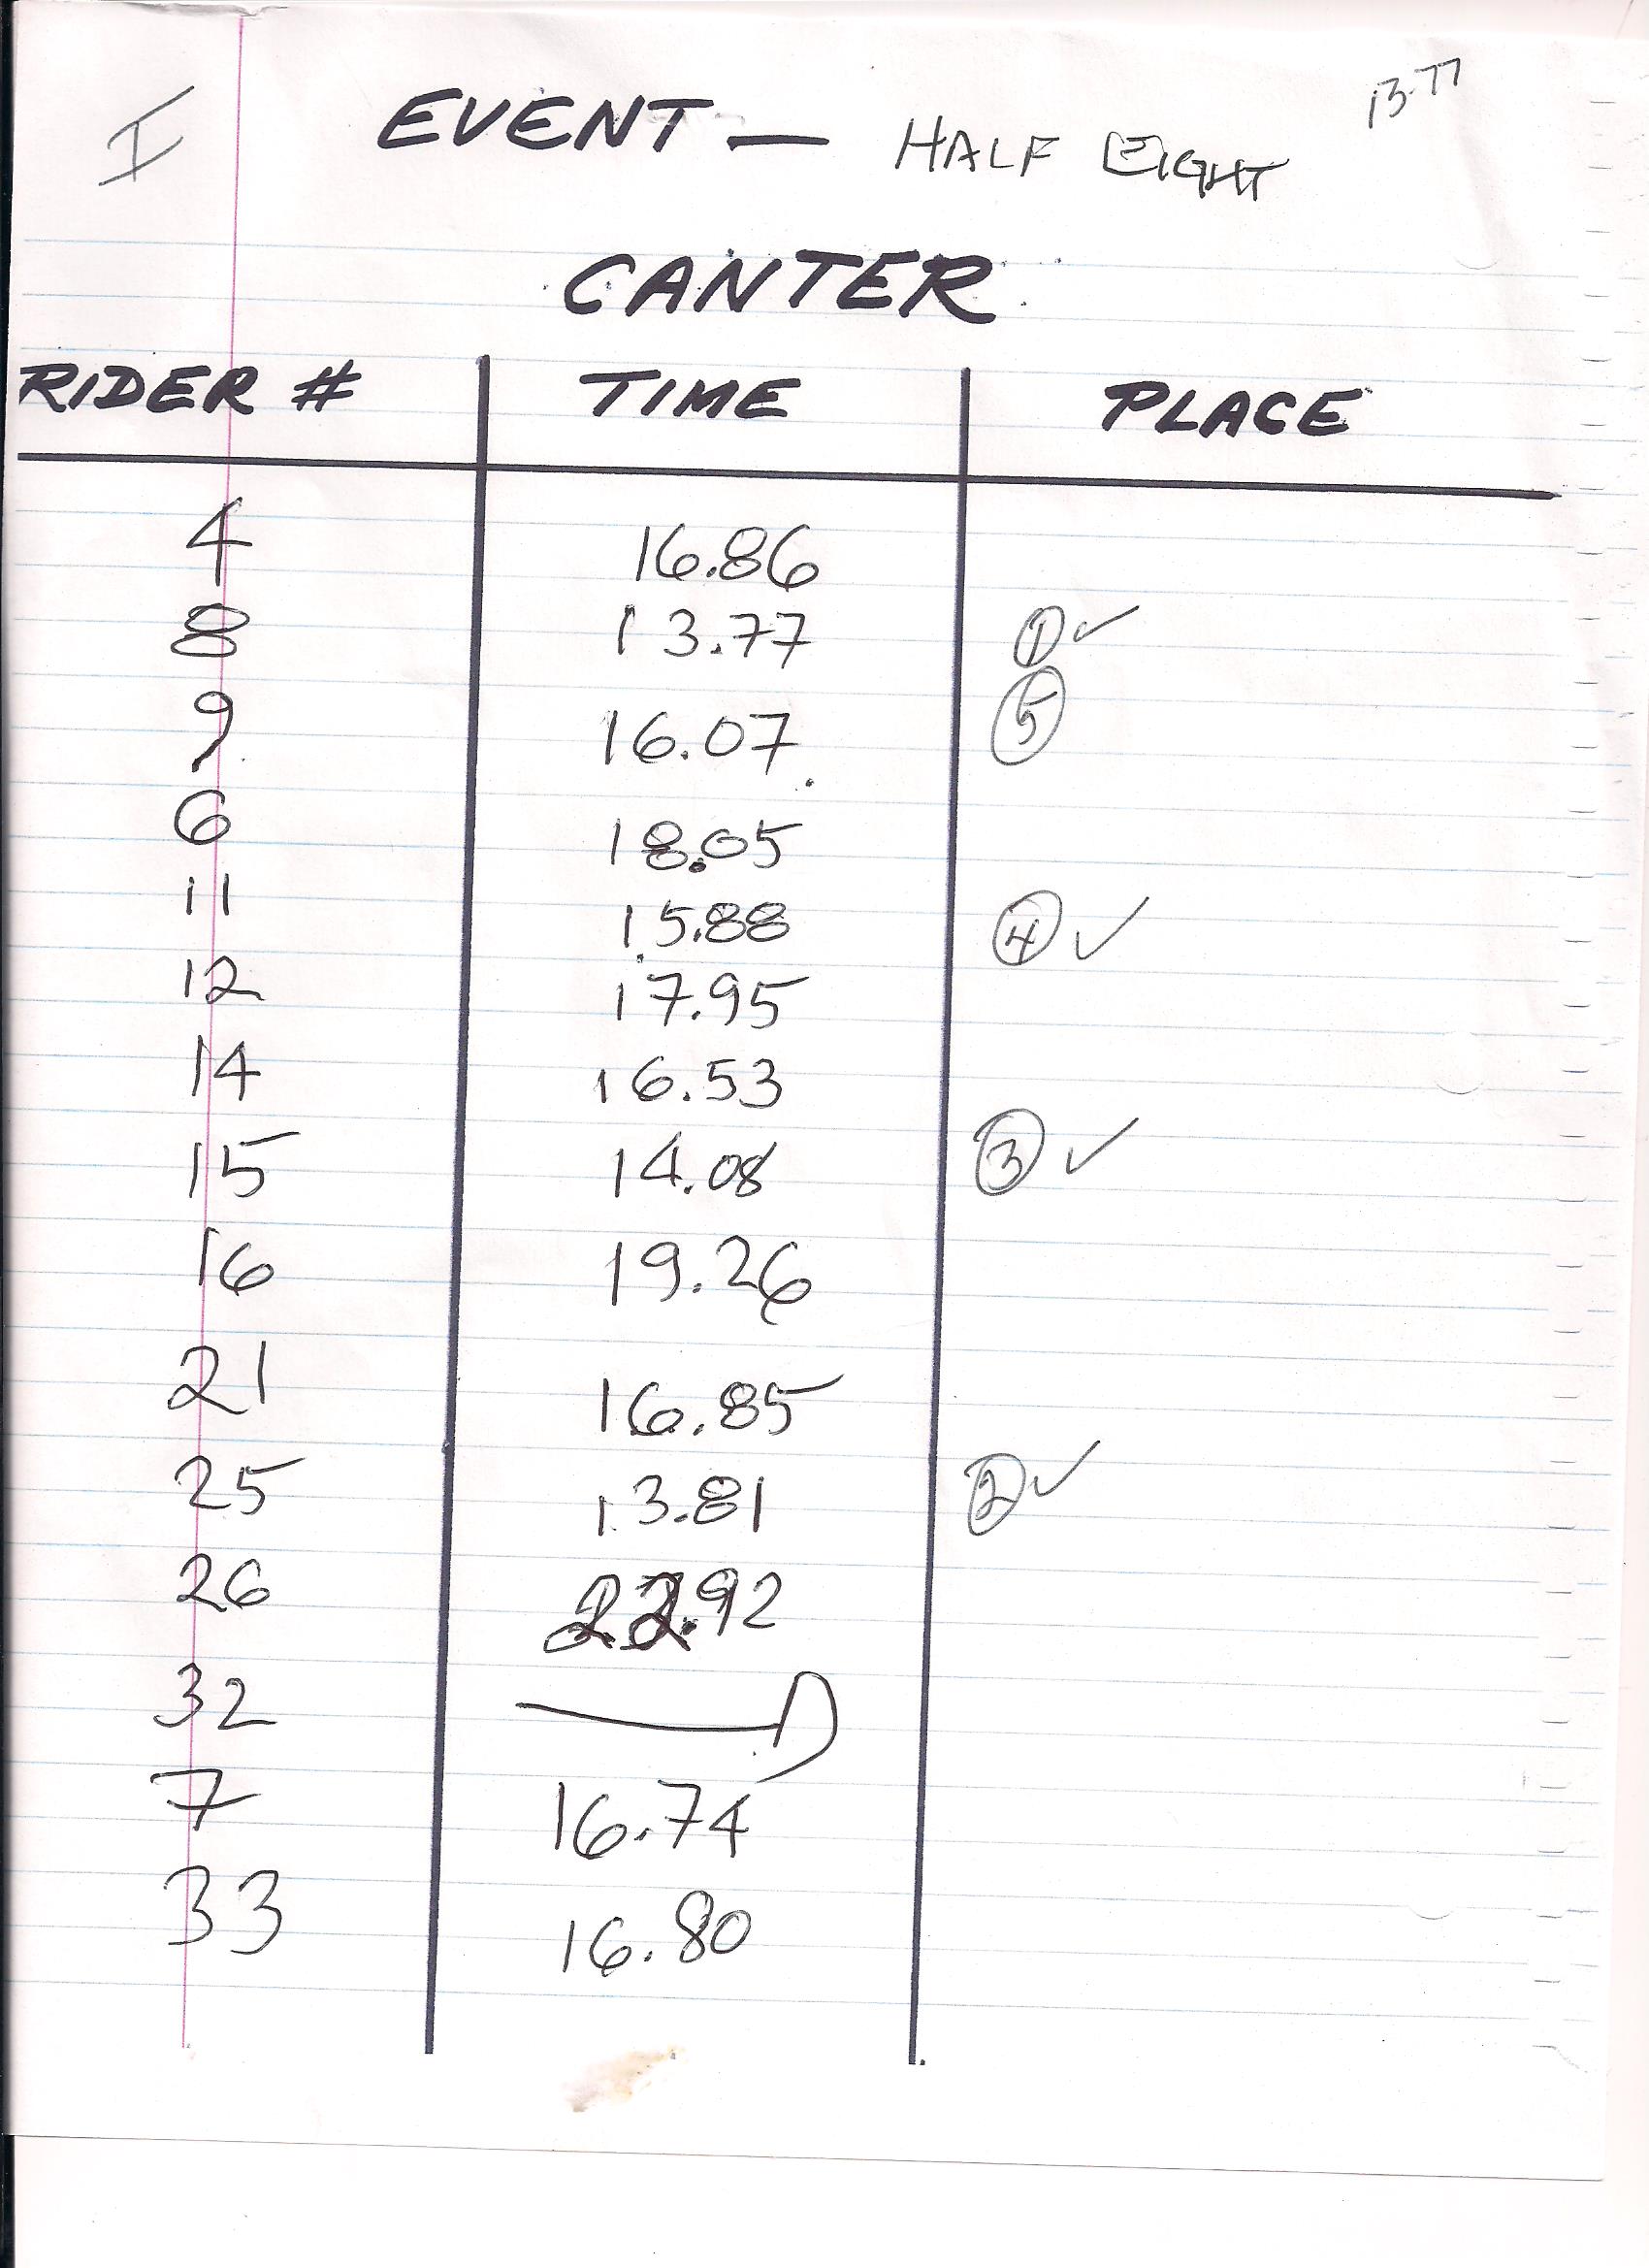 13.77
I EVENT — HALF EIGHT
CANTER
RIDER # TIME PLACE
4 16.86
8 13.77 ① ✓
9 16.07 ⑤
6 18.05
11 15.88 ④ ✓
12 17.95
14 16.53
15 14.08 ③ ✓
16 19.26
21 16.85
25 13.81 ② ✓
26 22.92
32 — D
7 16.74
33 16.80